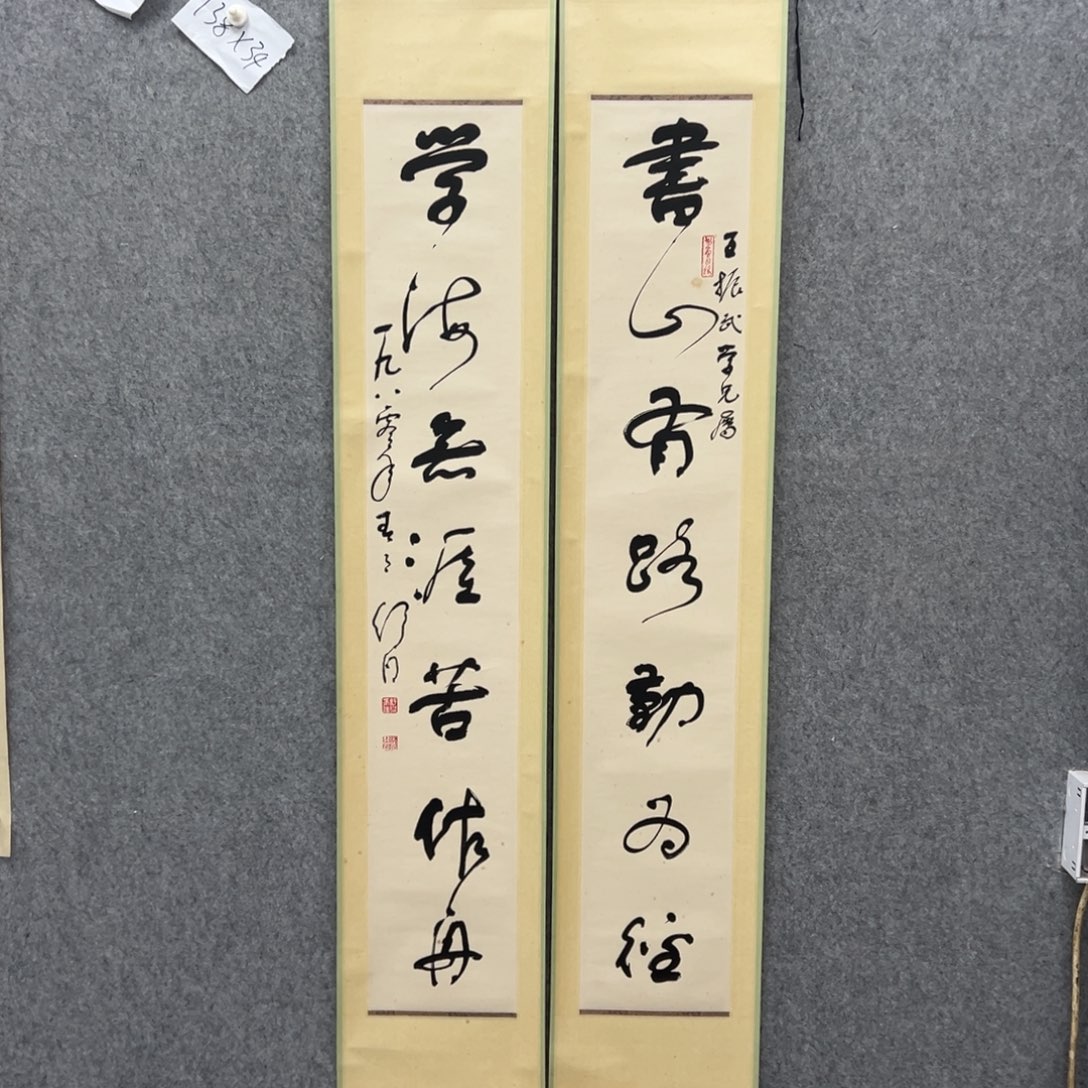 138×34
書山有路勤为径
王振武学兄属
学海无涯苦作舟
一九八零年